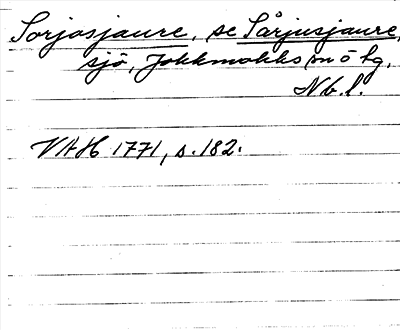 Sorjosjaure, se Sårjusjaure,
sjö, Jokkmokks sn o tg,
Nb.l.
VAH 1771, s. 182.